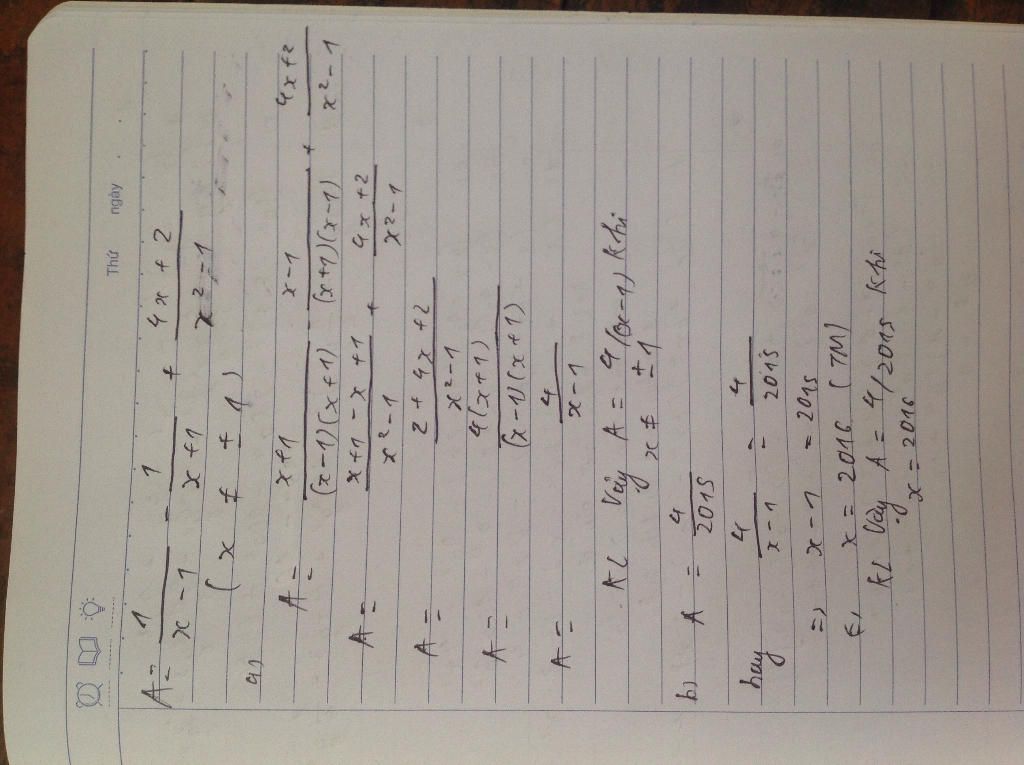 Thứ ngày
A = 1/(x-1) - 1/(x+1) + (4x+2)/(x²-1)
(x ≠ ± 1)
a) A = (x+1)/((x-1)(x+1)) - (x-1)/((x+1)(x-1)) + (4x+2)/(x²-1)
A = (x+1-x+1)/(x²-1) + (4x+2)/(x²-1)
A = (2+4x+2)/(x²-1)
A = 4(x+1)/((x-1)(x+1))
A = 4/(x-1)
KL Vậy A = 4/(x-1) khi
x ≠ ± 1
b) A = 4/2015
hay 4/(x-1) = 4/2015
=> x-1 = 2015
(=) x = 2016 (TM)
KL Vậy A = 4/2015 khi
x = 2016